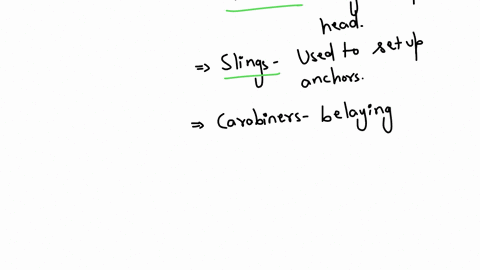 head.
⇒ Slings- Used to set up
anchors.
⇒ Carobiners- belaying